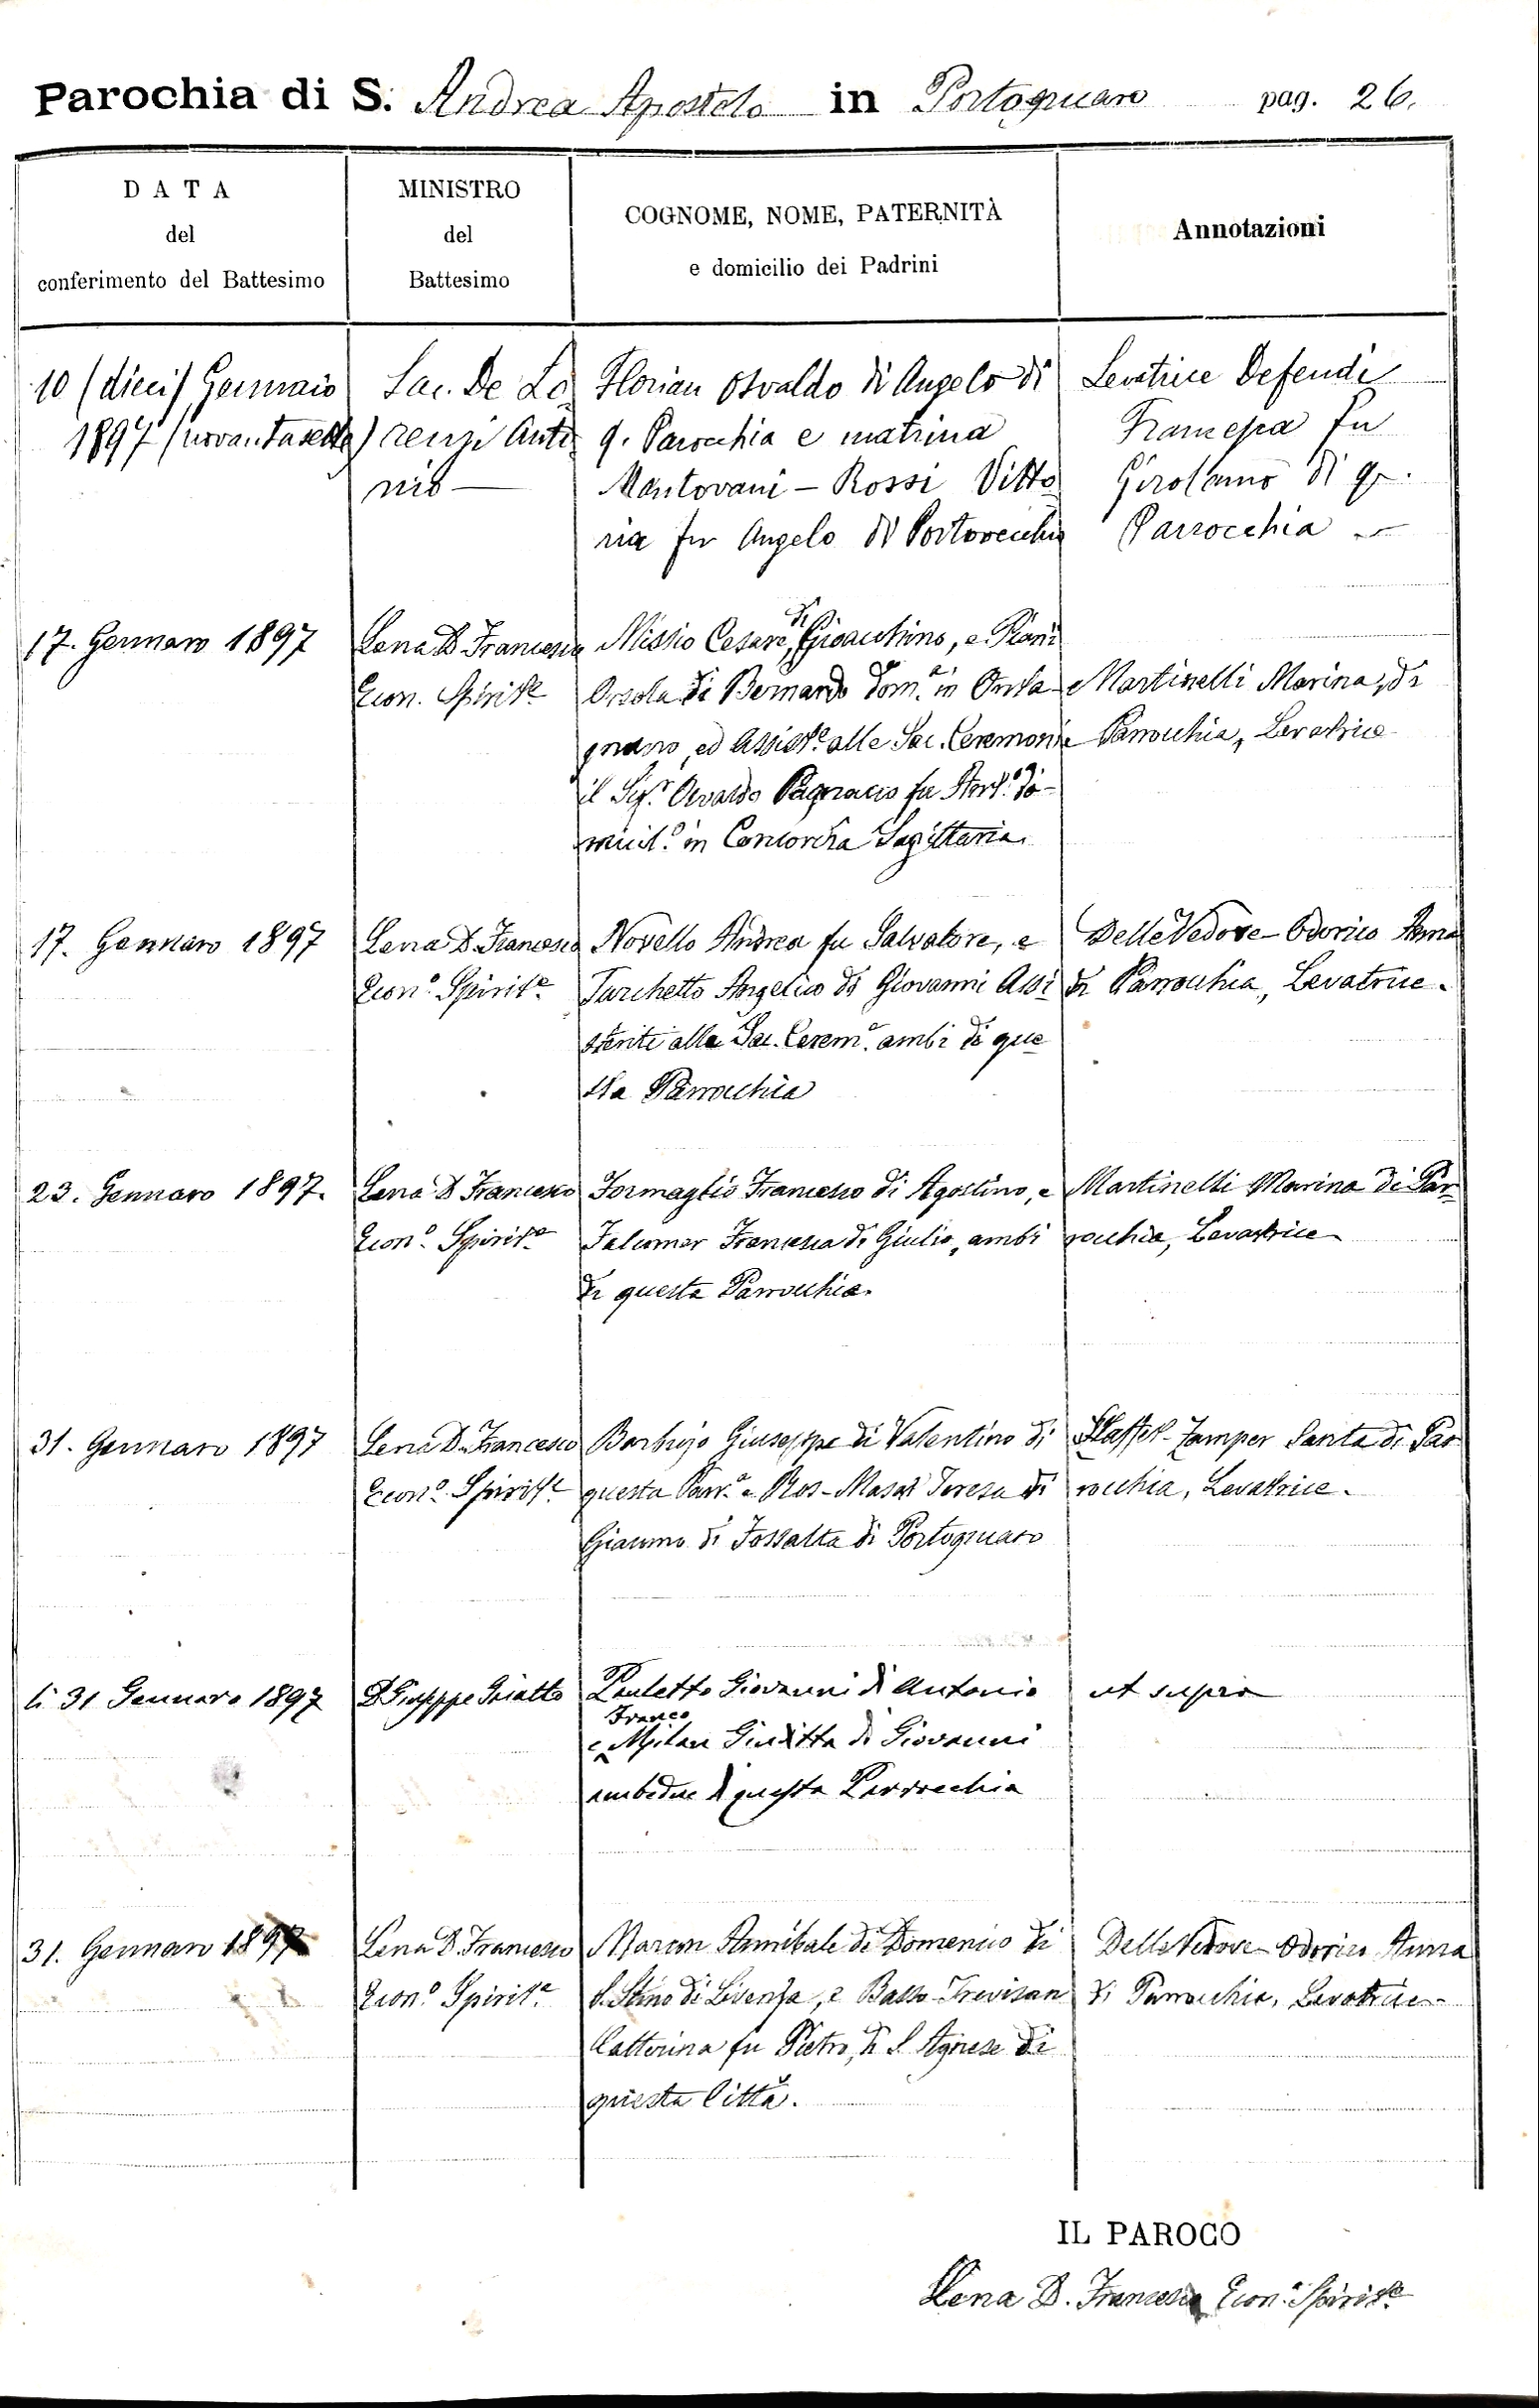 Parochia di S. Andrea Apostolo in Portogruaro pag. 26.
DATA
del
conferimento del Battesimo
MINISTRO
del
Battesimo
COGNOME, NOME, PATERNITÀ
e domicilio dei Padrini
Annotazioni
10 (dieci) Gennaio
1897 (novantasette)
Sac. De Lo
renzi Anto
nio
Florian Osvaldo di Angelo di
q. Parocchia e matrina
Mantovani - Rossi Vitto
ria fu Angelo di Portovecchio
Levatrice Defendi
fu
Girolamo di q.
Parrocchia
17. Gennaro 1897
Lena D. Francesco
Econ. Spirit.e
Missio Cesare, di Gioacchino, e Piani
Orsola di Bernardo Dom.a in
ed Assist.e alle Sac. Ceremonie
il Sig.r Osvaldo fu do-
micil.o in Concordia Sagittaria.
Martinelli Marina, di
Parrocchia, Levatrice
17. Gennaro 1897
Lena D. Francesco
Econ.o Spirit.e
Novello Andrea fu Salvatore, e
Turchetto Angelico di Giovanni Assi
stenti alle Sac. Cerem.e ambi di que
sta Parrocchia
Delle Vedove - Odorico Anna
di Parrocchia, Levatrice.
23. Gennaro 1897.
Lena D. Francesco
Econ.o Spirit.e
Formaglio Francesco di Agostino, e
Falcomer Francesca di Giulio, ambi
di questa Parrocchia.
Martinelli Marina di Par
rocchia, Levatrice
31. Gennaro 1897
Lena D. Francesco
Econ.o Spirit.e
Barbujo Giuseppe di Valentino di
questa Parr.a e Ros - Masat Teresa di
Giacomo di Fossalta di Portogruaro
Zamper Santa di Par
rocchia, Levatrice.
li 31 Gennaro 1897
D. Giuseppe
Pauletto Giovanni di Antonio
Franco
e Milan Giuditta di Giovanni
ambedue di questa Parrocchia
ut supra
31. Gennaro 1897
Lena D. Francesco
Econ.o Spirit.e
Marcon Annibale di Domenico di
S. Stino di Livenza, e Basso - Trevisan
Catterina fu Pietro, di S. Agnese di
questa Città.
Delle Vedove - Odorico Anna
di Parrocchia, Levatrice
IL PAROCO
Lena D. Francesco Econ.o Spirit.e